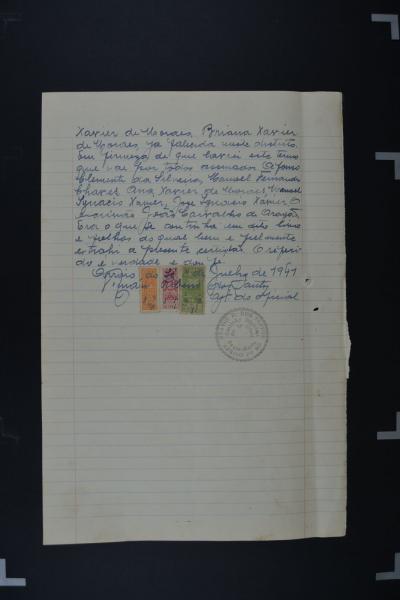 Xavier de Moraes, Briana Xavier
de Moraes, já falecida neste distrito.
Em firmeza de que lavrei este termo
que vae por todos assinado Afonso
Clemente da Silveira, Manoel Fernandes
Chaves, Ana Xavier de Moraes, Manoel
Ignacio Xavier, José Ignacio Xavier O
escrivão João Carvalho de Aragão
Era o que se continha em dito livro
e folhas do qual bem e fielmente
extrahi a presente certidão. O referi
do é verdade e dou fé.
Julho de 1941
dos Santos
Ajt. do Oficial